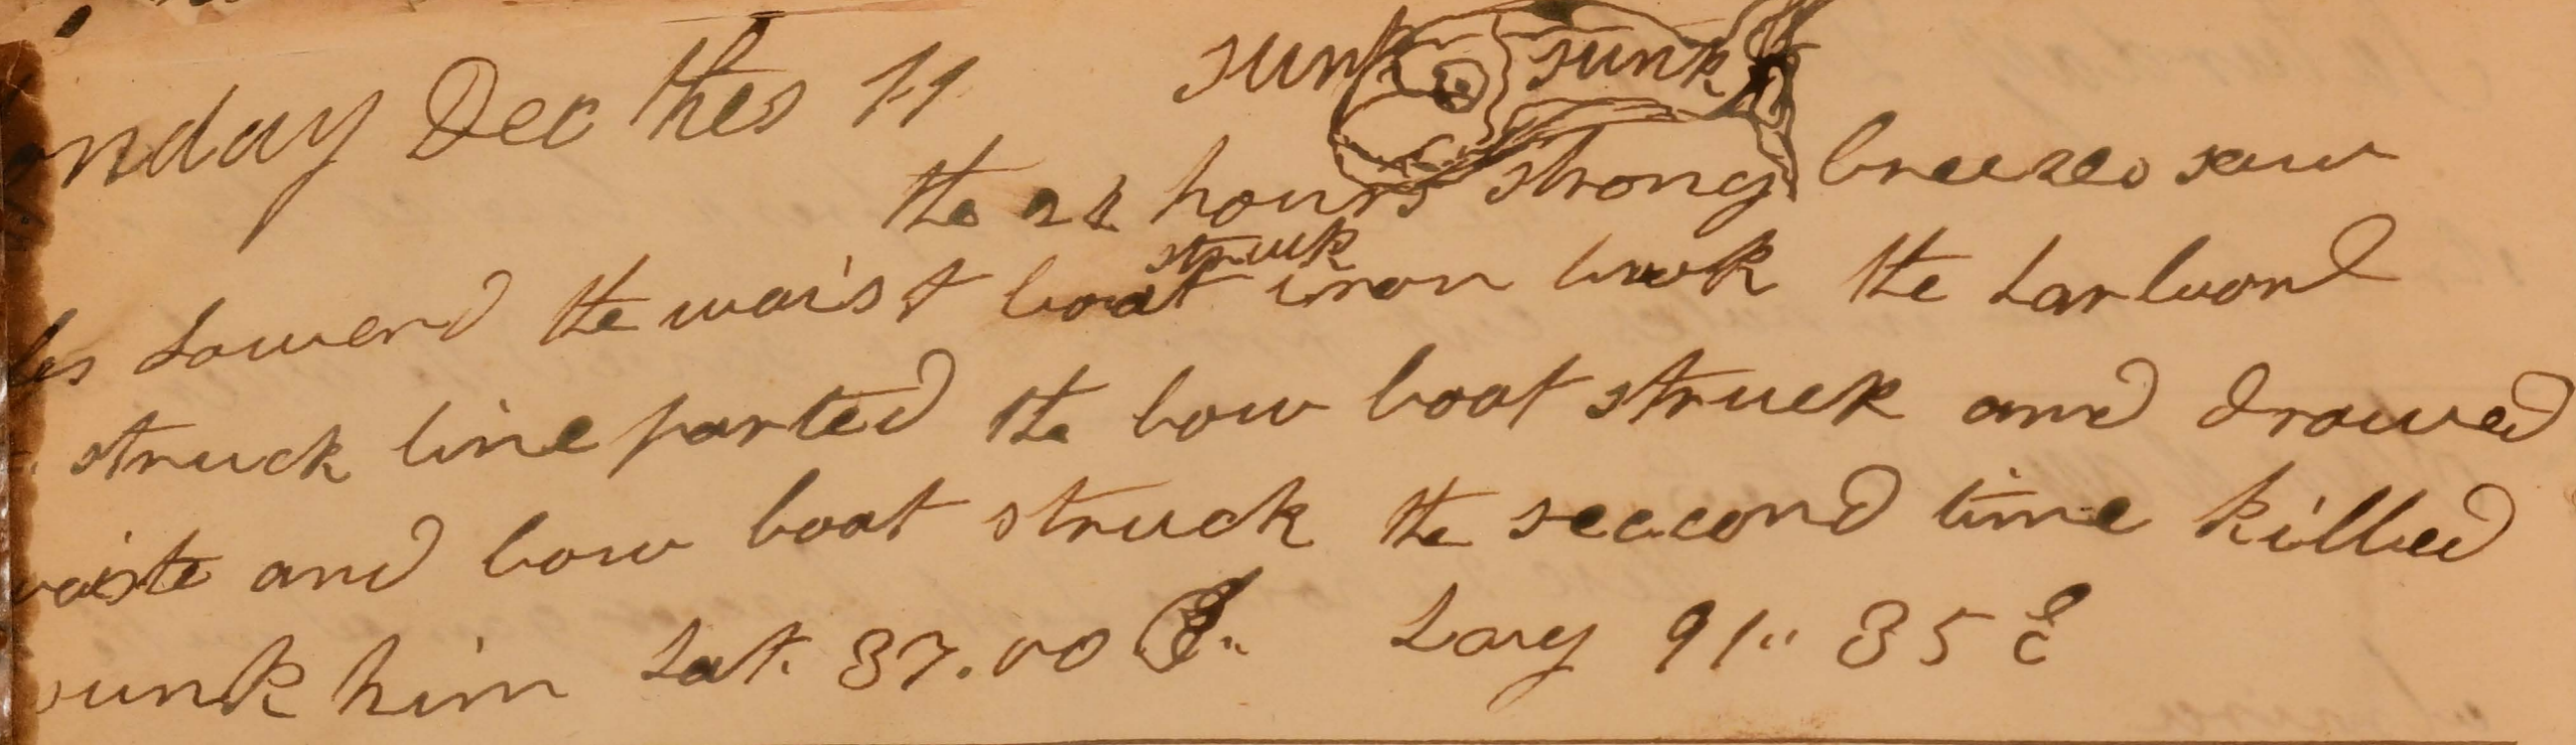 onday Dec thes 11 sunk sunk
the 24 hours strong breezes saw
les Lowerd the waist boat struck iron brok the Larbord
struck line parted the bow boat struck and drawed
waiste and bow boat struck the seccond time killed
sunk him Lat. 37.00 S.. Long 91" 35 E